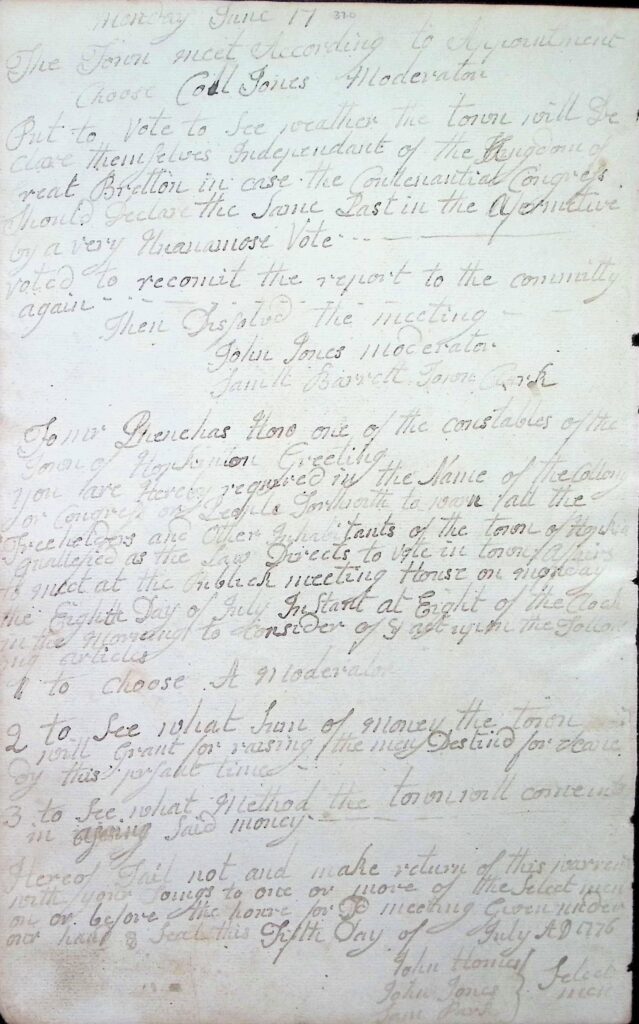 Monday June 17
The Town meet According to Appointment
Choose Coll Jones Moderator
Put to Vote to See weather the town will De
clare themselves Independant of the Kingdom of
reat Bretton in case the Contenantial Congress
Should Declare the Same Past in the Afermetive
by a very Unanamose Vote
Voted to recomit the report to the committy
again
Then Dissolvd the meeting
John Jones moderator
Samll Barrett Town Clark
To mr Phenehas How one of the constables of the
Town of Hopkinton Greeting
You are Hereby required in the Name of the Colony
or Congress or People Forthwith to warn all the
Freeholders and Other Inhabitants of the town of
quallefied as the Law Directs to vote in town Affairs
to meet at the Publick meeting House on monday
the Eighth Day of July Instant at Eight of the Clock
in the Morning to Consider of & act upon the Follow
ing articles
1 to choose A Moderator
2 to See what Sum of money the town
will Grant for raising the men Destind for
by this prsant time
3 to See what Method the town will come into
in Said money
Hereof Fail not and make return of this warrent
with your Doings to one or more of the Select men
on or before the houre for Sd meeting Given under
our hand & Seal this Fifth Day of July AD 1776
John Homes } Select
John Jones } men
Sam Park